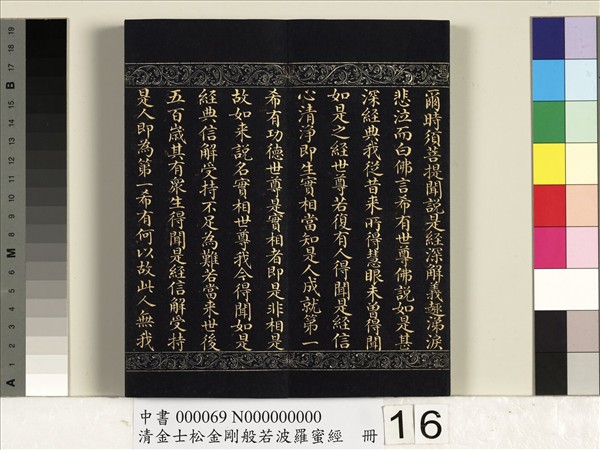 爾時須菩提聞說是經深解義趣涕淚
悲泣而白佛言希有世尊佛說如是甚
深經典我從昔來所得慧眼未曾得聞
如是之經世尊若復有人得聞是經信
心清淨即生實相當知是人成就第一
希有功德世尊是實相者即是非相是
故如来說名實相世尊我今得聞如是
經典信解受持不足為難若當来世後
五百歲其有衆生得聞是經信解受持
是人即為第一希有何以故此人無我
中書 000069 N000000000
清金士松金剛般若波羅蜜經 冊 16
B 19 18 17 16 15 14 13 12 11 10 9 8 M 7 6 5 4 3 2 1 A